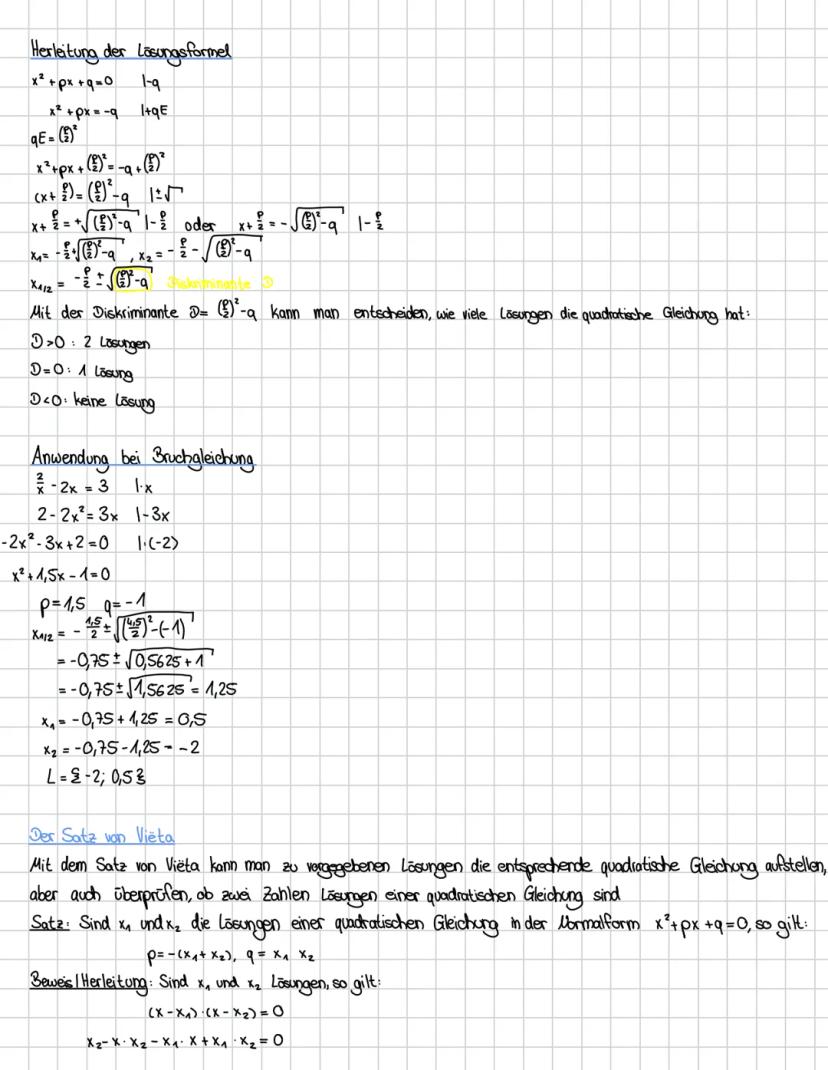 Herleitung der Lösungsformel
x² + px + q = 0 |-q
x² + px = -q |+qE
qE = (p/2)²
x² + px + (p/2)² = -q + (p/2)²
(x + p/2) = (p/2)² - q |±√
x + p/2 = +√((p/2)² - q) |-p/2 oder x + p/2 = -√((p/2)² - q) |-p/2
x₁ = -p/2 + √((p/2)² - q), x₂ = -p/2 - √((p/2)² - q)
x₁/₂ = -p/2 ± √((p/2)² - q) Diskriminante D
Mit der Diskriminante D = (p/2)² - q kann man entscheiden, wie viele Lösungen die quadratische Gleichung hat:
D > 0 : 2 Lösungen
D = 0 : 1 Lösung
D < 0 : keine Lösung
Anwendung bei Bruchgleichung
2/x - 2x = 3 |·x
2 - 2x² = 3x |-3x
-2x² - 3x + 2 = 0 |:(-2)
x² + 1,5x - 1 = 0
p = 1,5 q = -1
x₁/₂ = - 1,5/2 ± √((1,5/2)² - (-1))
= -0,75 ± √(0,5625 + 1)
= -0,75 ± √1,5625 = 1,25
x₁ = -0,75 + 1,25 = 0,5
x₂ = -0,75 - 1,25 = -2
L = {-2; 0,5}
Der Satz von Viëta
Mit dem Satz von Viëta kann man zu vorgegebenen Lösungen die entsprechende quadratische Gleichung aufstellen,
aber auch überprüfen, ob zwei Zahlen Lösungen einer quadratischen Gleichung sind
Satz: Sind x₁ und x₂ die Lösungen einer quadratischen Gleichung in der Normalform x² + px + q = 0, so gilt:
p = -(x₁ + x₂), q = x₁ x₂
Beweis | Herleitung: Sind x₁ und x₂ Lösungen, so gilt:
(x - x₁) · (x - x₂) = 0
x₂ - x · x₂ - x₁ · x + x₁ · x₂ = 0